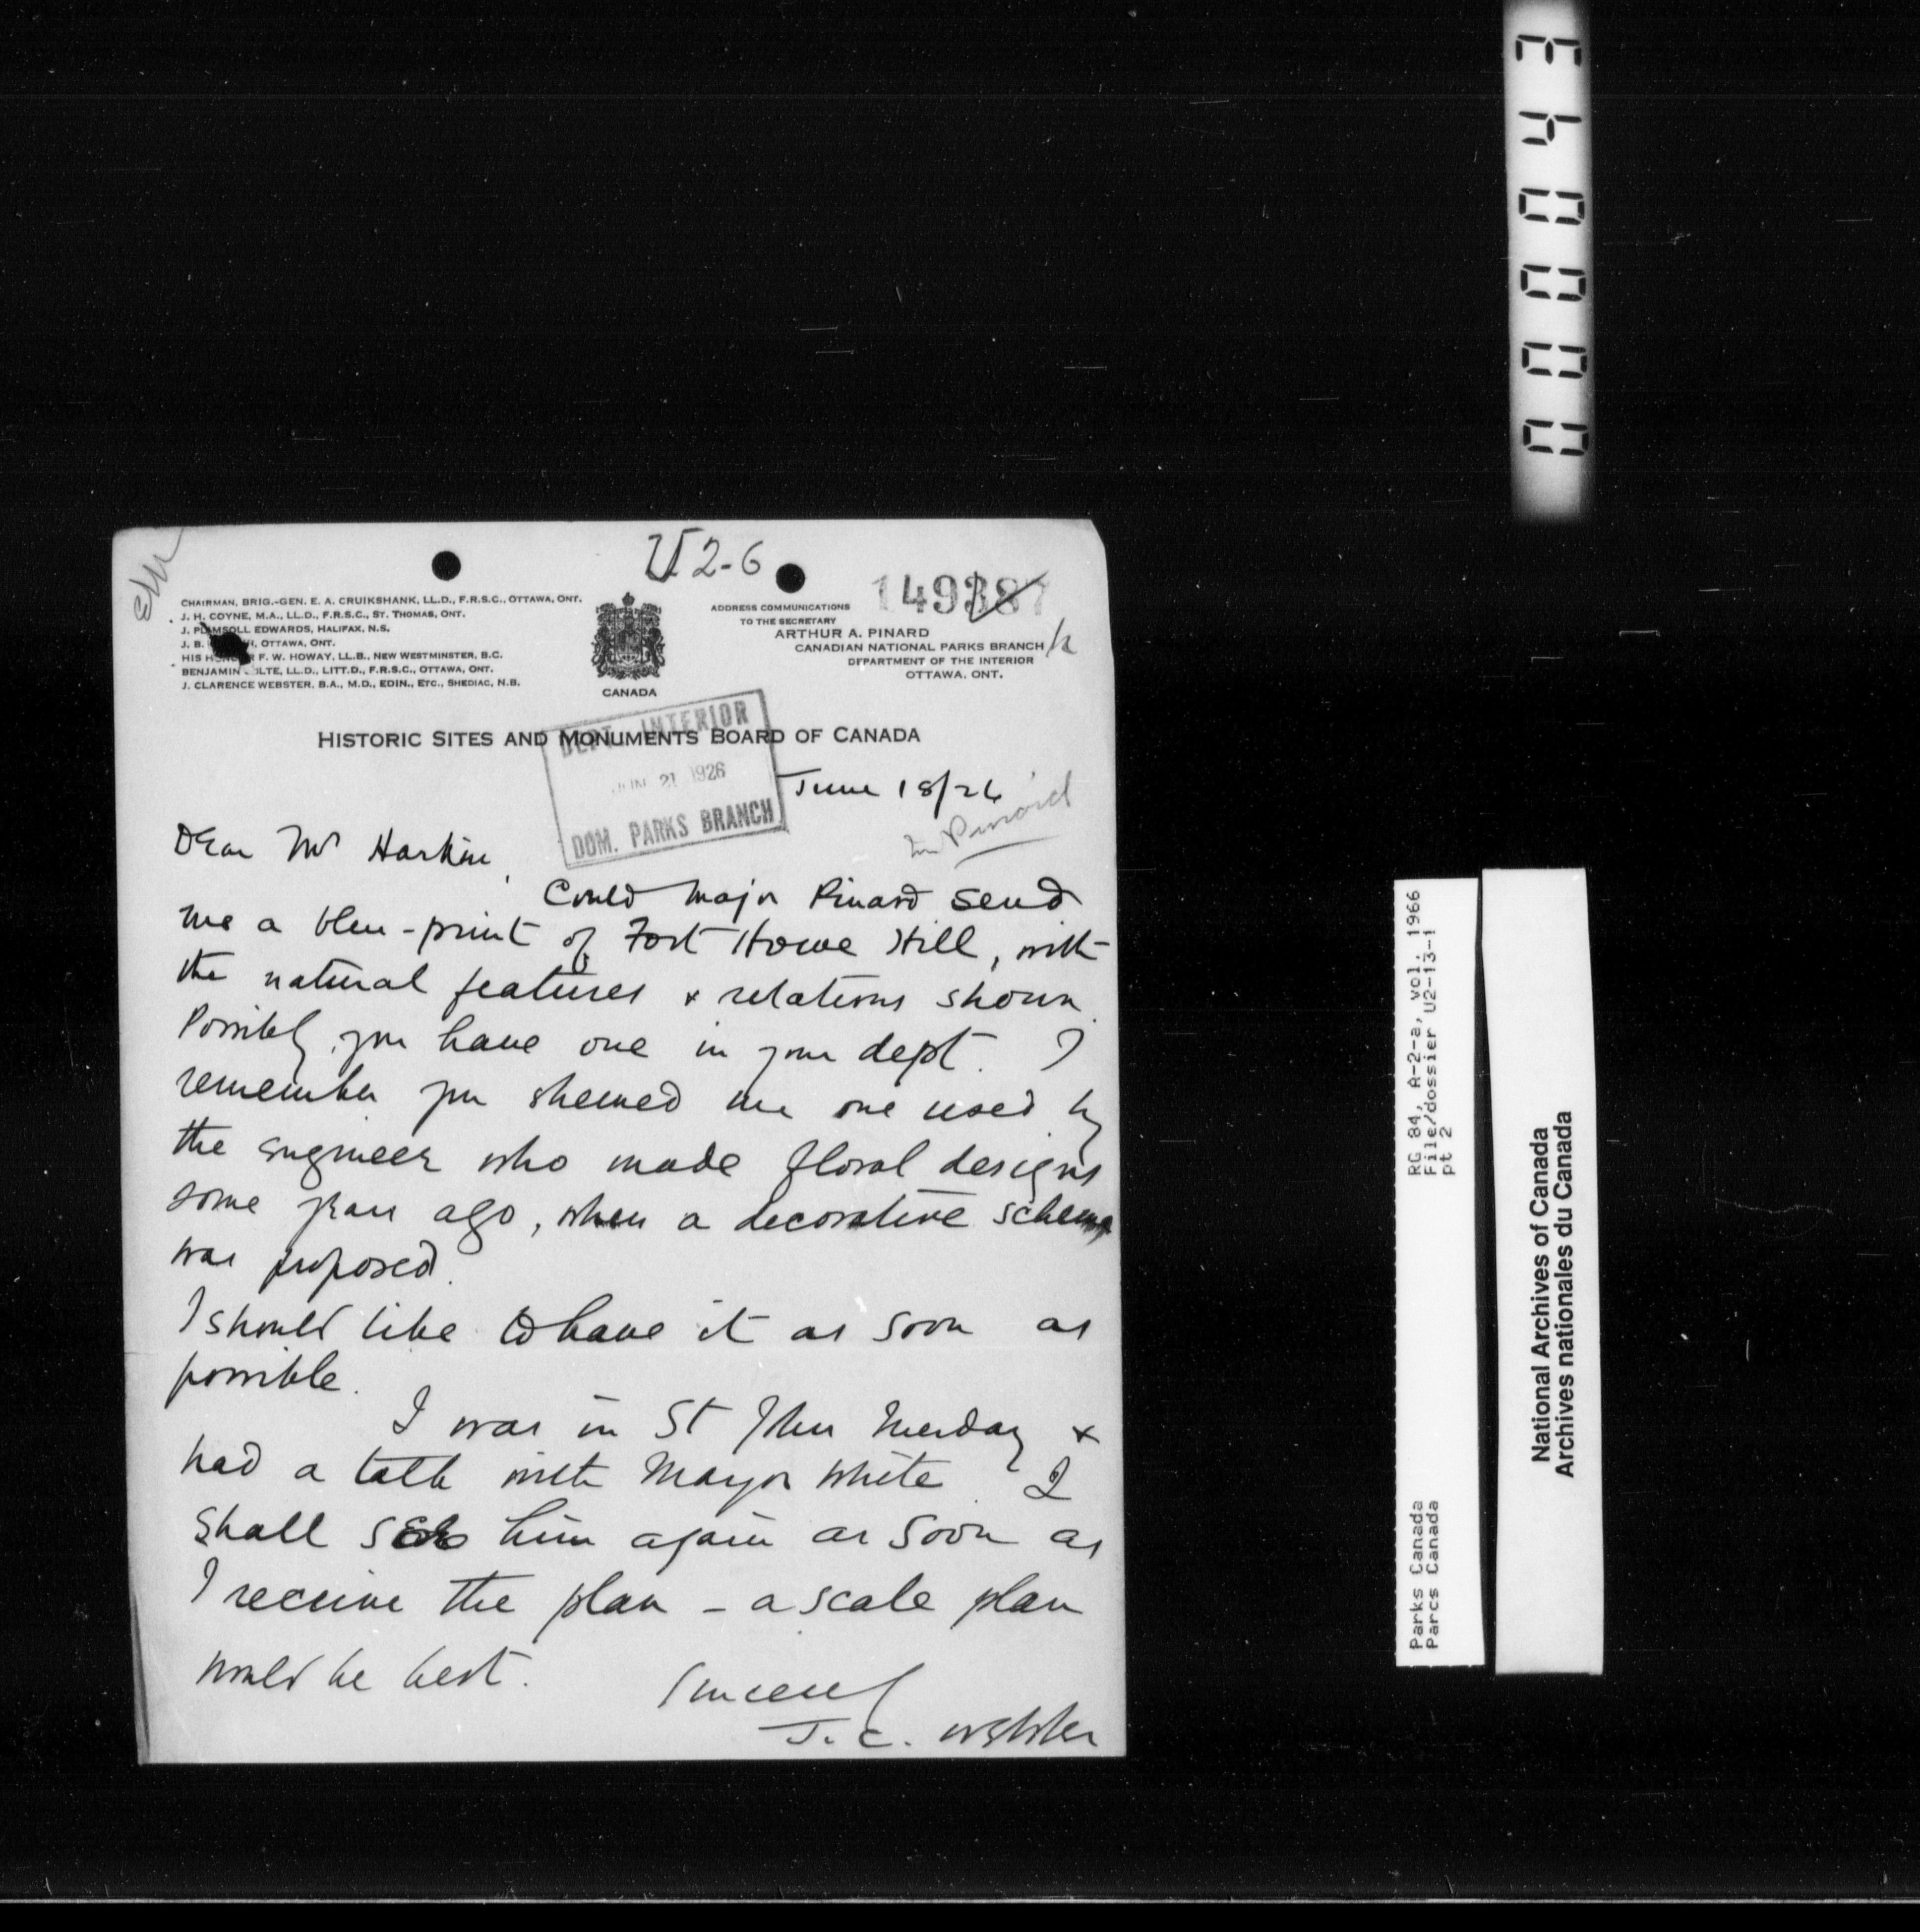 U2-6
149387
CHAIRMAN, BRIG.-GEN. E. A. CRUIKSHANK, LL.D., F.R.S.C., OTTAWA, ONT.
J. H. COYNE, M.A., LL.D., F.R.S.C., ST. THOMAS, ONT.
J. PLIMSOLL EDWARDS, HALIFAX, N.S.
J. B. OTTAWA, ONT.
HIS F. W. HOWAY, LL.B., NEW WESTMINSTER, B.C.
BENJAMIN LL.D., LITT.D., F.R.S.C., OTTAWA, ONT.
J. CLARENCE WEBSTER, B.A., M.D., EDIN., ETC., SHEDIAC, N.B.
CANADA
ADDRESS COMMUNICATIONS
TO THE SECRETARY
ARTHUR A. PINARD
CANADIAN NATIONAL PARKS BRANCH
DEPARTMENT OF THE INTERIOR
OTTAWA, ONT.
HISTORIC SITES AND MONUMENTS BOARD OF CANADA
DEPT. INTERIOR
JUN 21 1926
DOM. PARKS BRANCH
June 18/26
Pinard
Dear Mr Harkin,
Could Major Pinard send
me a blue-print of Fort Howe Hill, with
the natural features & relations shown.
Possibly you have one in your dept. I
remember you shewed me one used by
the engineer who made floral designs
some years ago, when a decorative scheme
was proposed.
I should like to have it as soon as
possible.
I was in St John Tuesday &
had a talk with Mayor White. I
shall see him again as soon as
I receive the plan - a scale plan
would be best.
Sincerely
J. C. Webster
000043
RG 84, A-2-a, vol. 1966
File/dossier U2-13-1
pt 2
Parks Canada
Parcs Canada
National Archives of Canada
Archives nationales du Canada